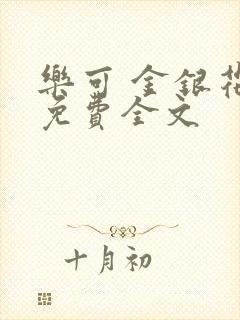 樂可 金銀花
免費全文
十月初